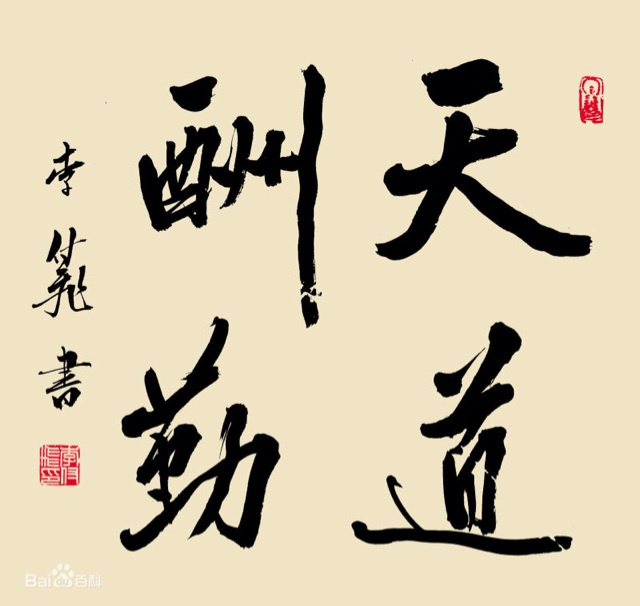 天道
酬勤
李 書
Bai百科